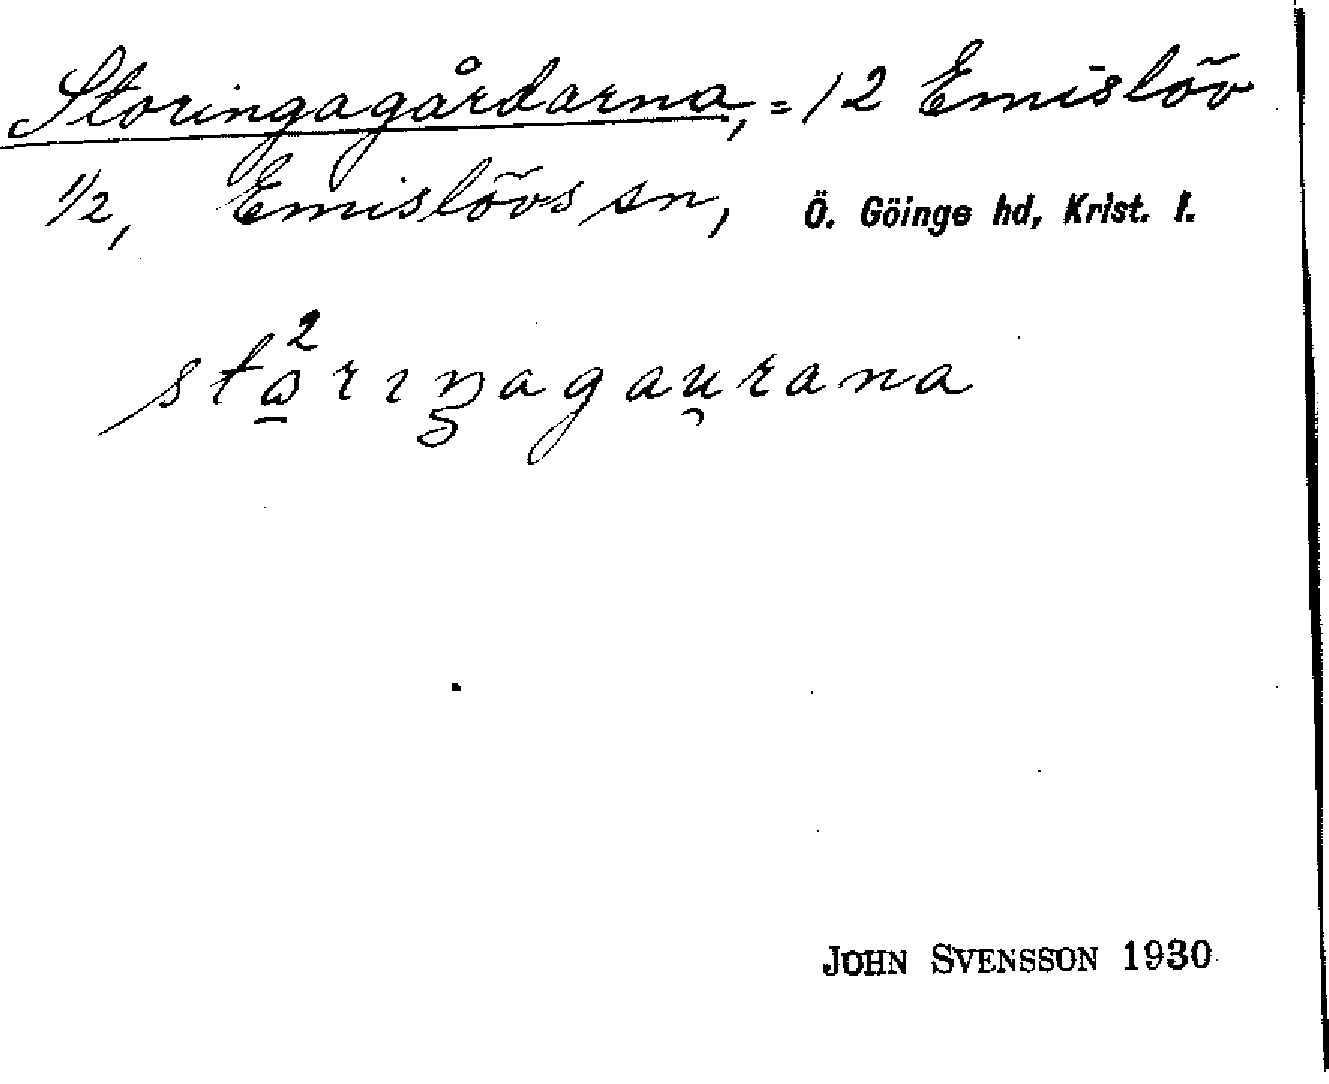 Storingagårdarna, = 12 Emislöv
1/2, Emislövs sn, Ö. Göinge hd, Krist. l.
stω̱²rıŋagau̯rana
JOHN SVENSSON 1930